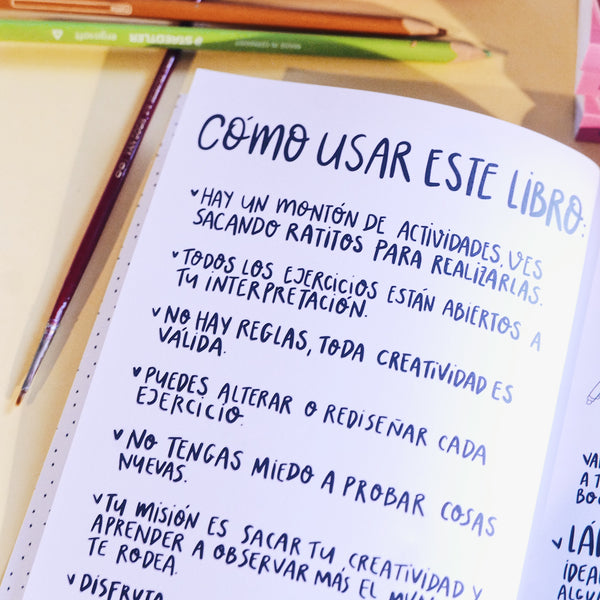 STAEDTLER ergosoft MADE IN GERMANY
CÓMO USAR ESTE LIBRO:
HAY UN MONTÓN DE ACTIVIDADES, VES
SACANDO RATITOS PARA REALIZARLAS.
TODOS LOS EJERCICIOS ESTÁN ABIERTOS A
TU INTERPRETACIÓN.
NO HAY REGLAS, TODA CREATIVIDAD ES
VÁLIDA.
PUEDES ALTERAR O REDISEÑAR CADA
EJERCICIO.
NO TENGAS MIEDO A PROBAR COSAS
NUEVAS.
TU MISIÓN ES SACAR TU CREATIVIDAD Y
APRENDER A OBSERVAR MÁS EL
TE RODEA.
DISFRUTA